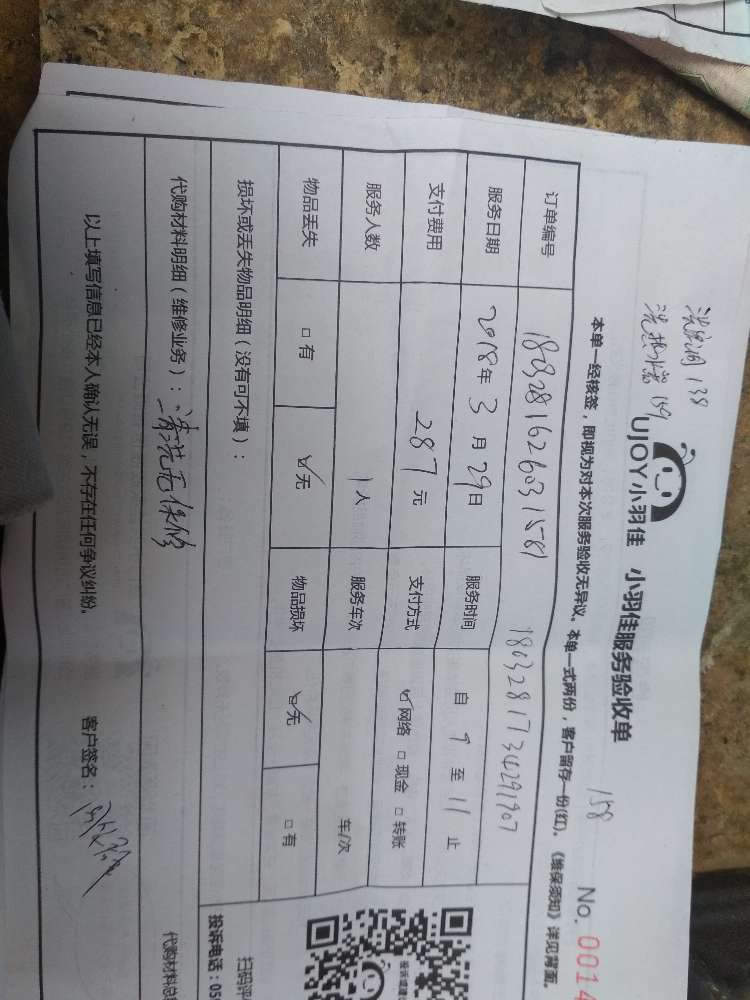 洗空调 138
洗热水器 159
158
UJOY小羽佳 小羽佳服务验收单
No. 0014
本单一经核签,即视为对本次服务验收无异议。本单一式两份,客户留存一份(红)。《维保须知》详见背面。
订单编号 1803281626031581 1803281734291907
服务日期 2018年3月29日 服务时间 自 9 至 11 止
支付费用 287元 支付方式 ☑网络 □现金 □转账
服务人数 1人 服务车次 车/次
物品丢失 □有 ☑无 物品损坏 ☑无 □有
损坏或丢失物品明细(没有可不填):
代购材料明细(维修业务):清洗无保修
代购材料总
以上填写信息已经本人确认无误,不存在任何争议纠纷。
客户签名:
扫码评
投诉电话:05